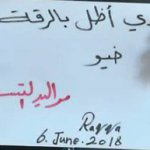 دي أظل بالرقة
خيو
مواليد الت
Raqqa
6. June. 2018